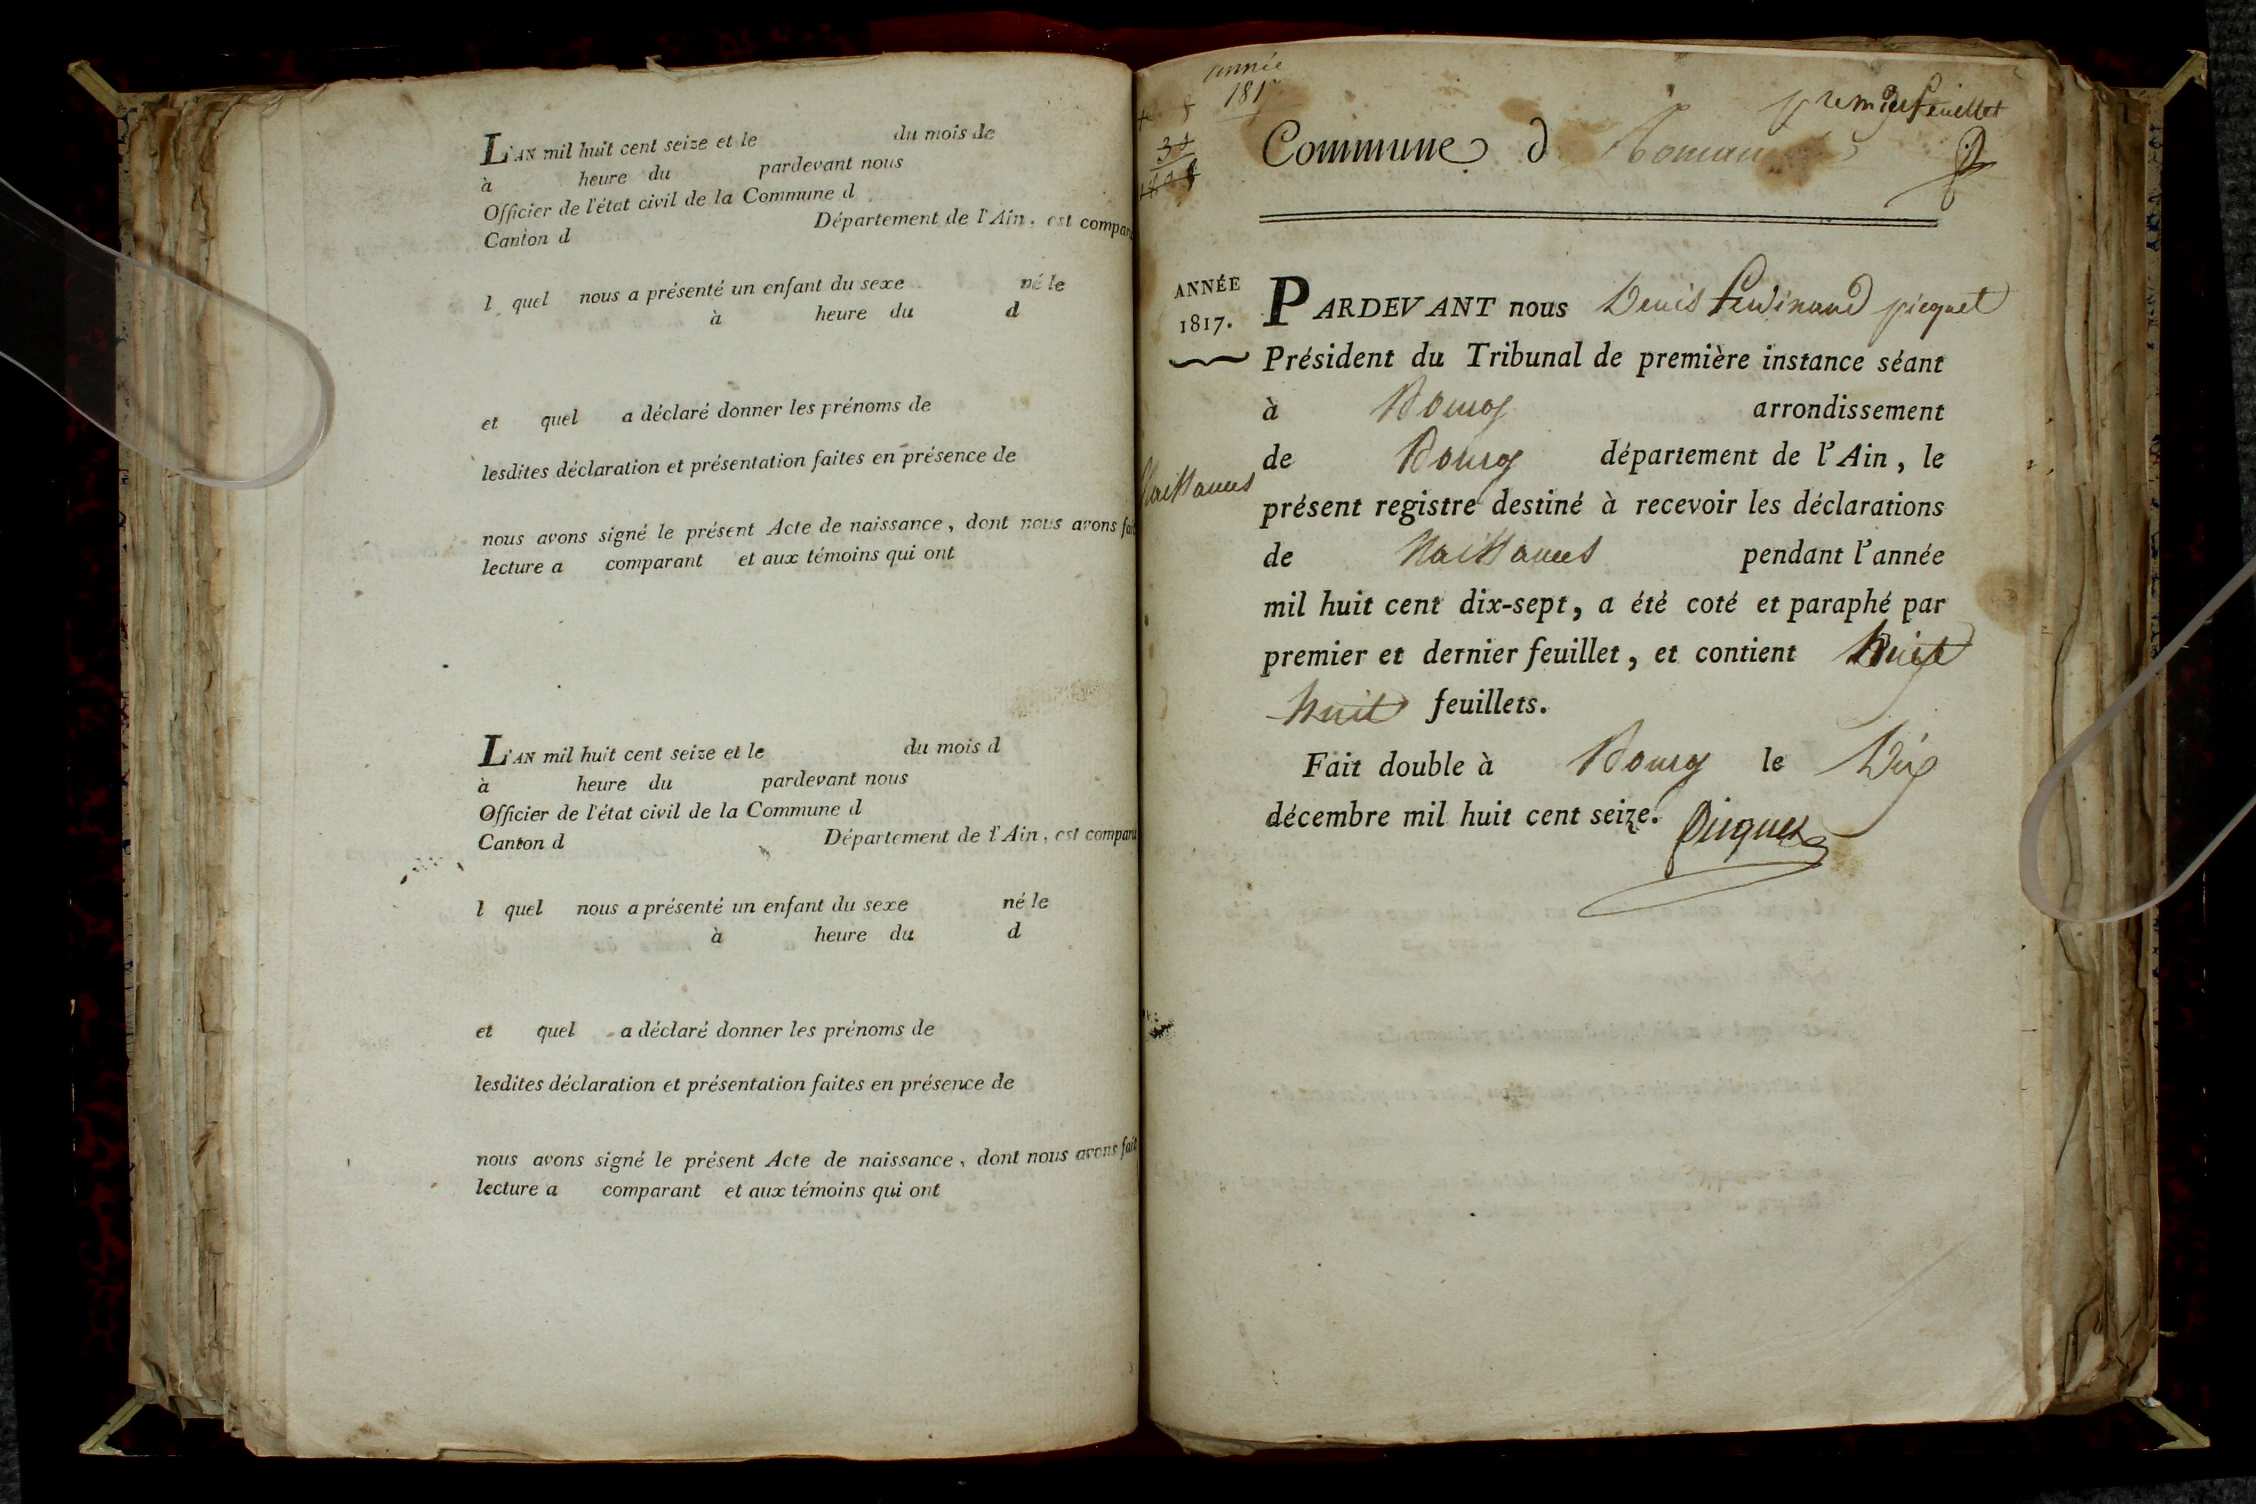 L'AN mil huit cent seize et le du mois de
à heure du pardevant nous
Officier de l'état civil de la Commune d
Canton d Département de l'Ain, est compar
l quel nous a présenté un enfant du sexe né le
à heure du d
et quel a déclaré donner les prénoms de
lesdites déclaration et présentation faites en présence de
nous avons signé le présent Acte de naissance, dont nous avons fait
lecture a comparant et aux témoins qui ont
L'AN mil huit cent seize et le du mois d
à heure du pardevant nous
Officier de l'état civil de la Commune d
Canton d Département de l'Ain, est comparu
l quel nous a présenté un enfant du sexe né le
à heure du d
et quel a déclaré donner les prénoms de
lesdites déclaration et présentation faites en présence de
nous avons signé le présent Acte de naissance, dont nous avons fait
lecture a comparant et aux témoins qui ont
année
1817
premier feuillet
Commune d
ANNÉE
1817.
Naissances
PARDEVANT nous Denis ferdinand picquet
Président du Tribunal de première instance séant
à Bourg arrondissement
de Bourg département de l'Ain, le
présent registre destiné à recevoir les déclarations
de Naissances pendant l'année
mil huit cent dix-sept, a été coté et paraphé par
premier et dernier feuillet, et contient
huit feuillets.
Fait double à Bourg le Dix
décembre mil huit cent seize. Picquet